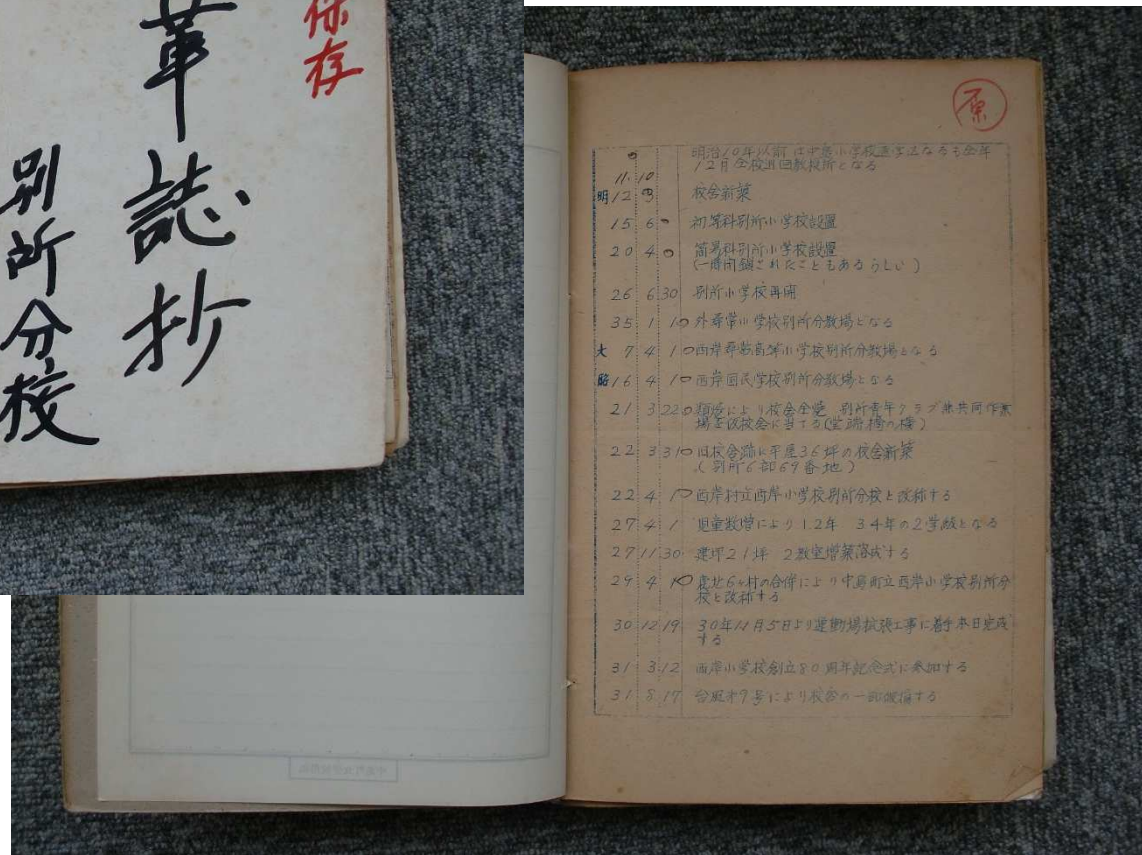 保存
革誌抄
別所分校
原
明治10年以前は中島小学校通学区なるも仝年
11 10 12月仝校巡回教授所となる
明12 9 校舎新築
15 6 初等科別所小学校設置
20 4 簡易科別所小学校設置
(一時閉鎖されたこともあるらしい)
26 6 30 別所小学校再開
35 1 1 外尋常小学校別所分教場となる
大 7 4 1 西岸尋常高等小学校別所分教場となる
昭16 4 1 西岸国民学校別所分教場となる
21 3 22 類焼により校舎全焼 別所青年クラブ兼共同作業
場を仮校舎に当てる
22 3 31 旧校舎跡に平屋36坪の校舎新築
(別所6部69番地)
22 4 1 西岸村立西岸小学校別所分校と改称する
27 4 1 児童数増により1.2年 3.4年の2学級となる
27 11 30 建坪21坪 2教室増築落成する
29 4 1 鹿北6ヶ村の合併により中島町立西岸小学校別所分
校と改称する
30 12 19 30年11月5日より運動場拡張工事に着手本日完成
する
31 3 12 西岸小学校創立80周年記念式に参加する
31 8 17 台風才9号により校舎の一部破損する